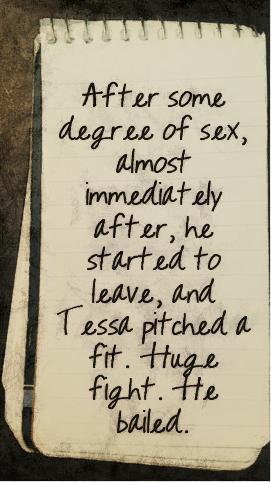 After some
degree of sex,
almost
immediately
after, he
started to
leave, and
Tessa pitched a
fit. Huge
fight. He
bailed.